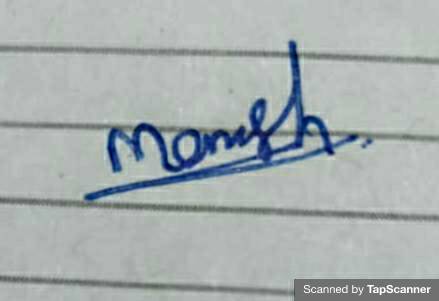 Manish.
Scanned by TapScanner